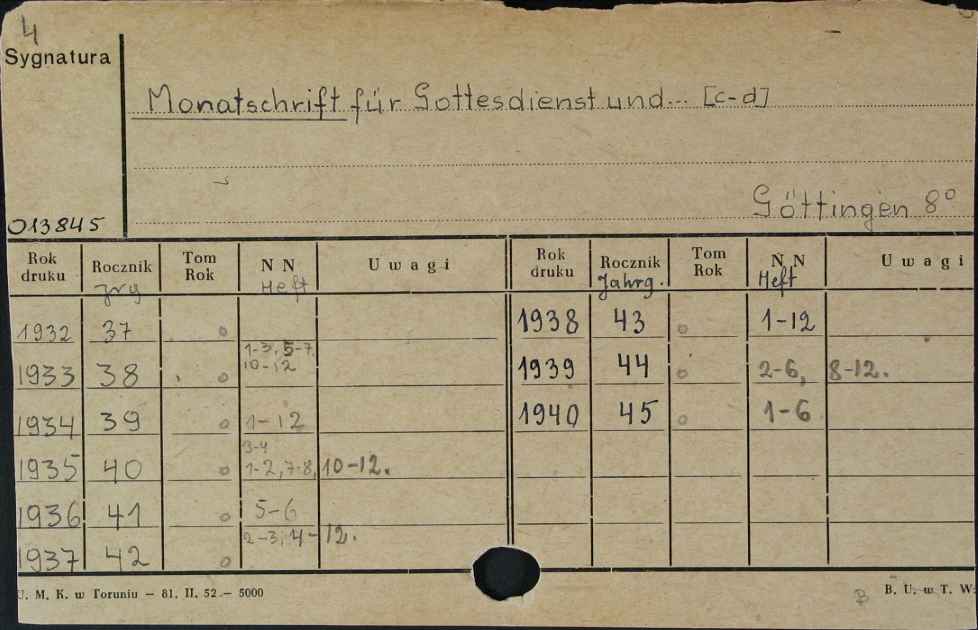 4
Sygnatura
Monatschrift für Gottesdienst und... [c-d]
Göttingen 8°
013845
Rok druku Rocznik Tom Rok N N Uwagi Rok druku Rocznik Tom Rok N N Uwagi
Jrg Heft Jahrg. Heft
1932 37 o 1938 43 o 1-12
1933 38 o 1-3, 5-7 10-12 1939 44 o 2-6, 8-12.
1934 39 o 1-12 1940 45 o 1-6
1935 40 o 3-4 1-2, 7-8, 10-12.
1936 41 o 5-6
1937 42 o 2-3, 4-12.
U. M. K. w Toruniu — 81. II. 52 — 5000
B B. U. w T. W: